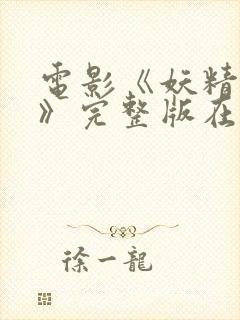 電影《妖精
》完整版在
徐一龍